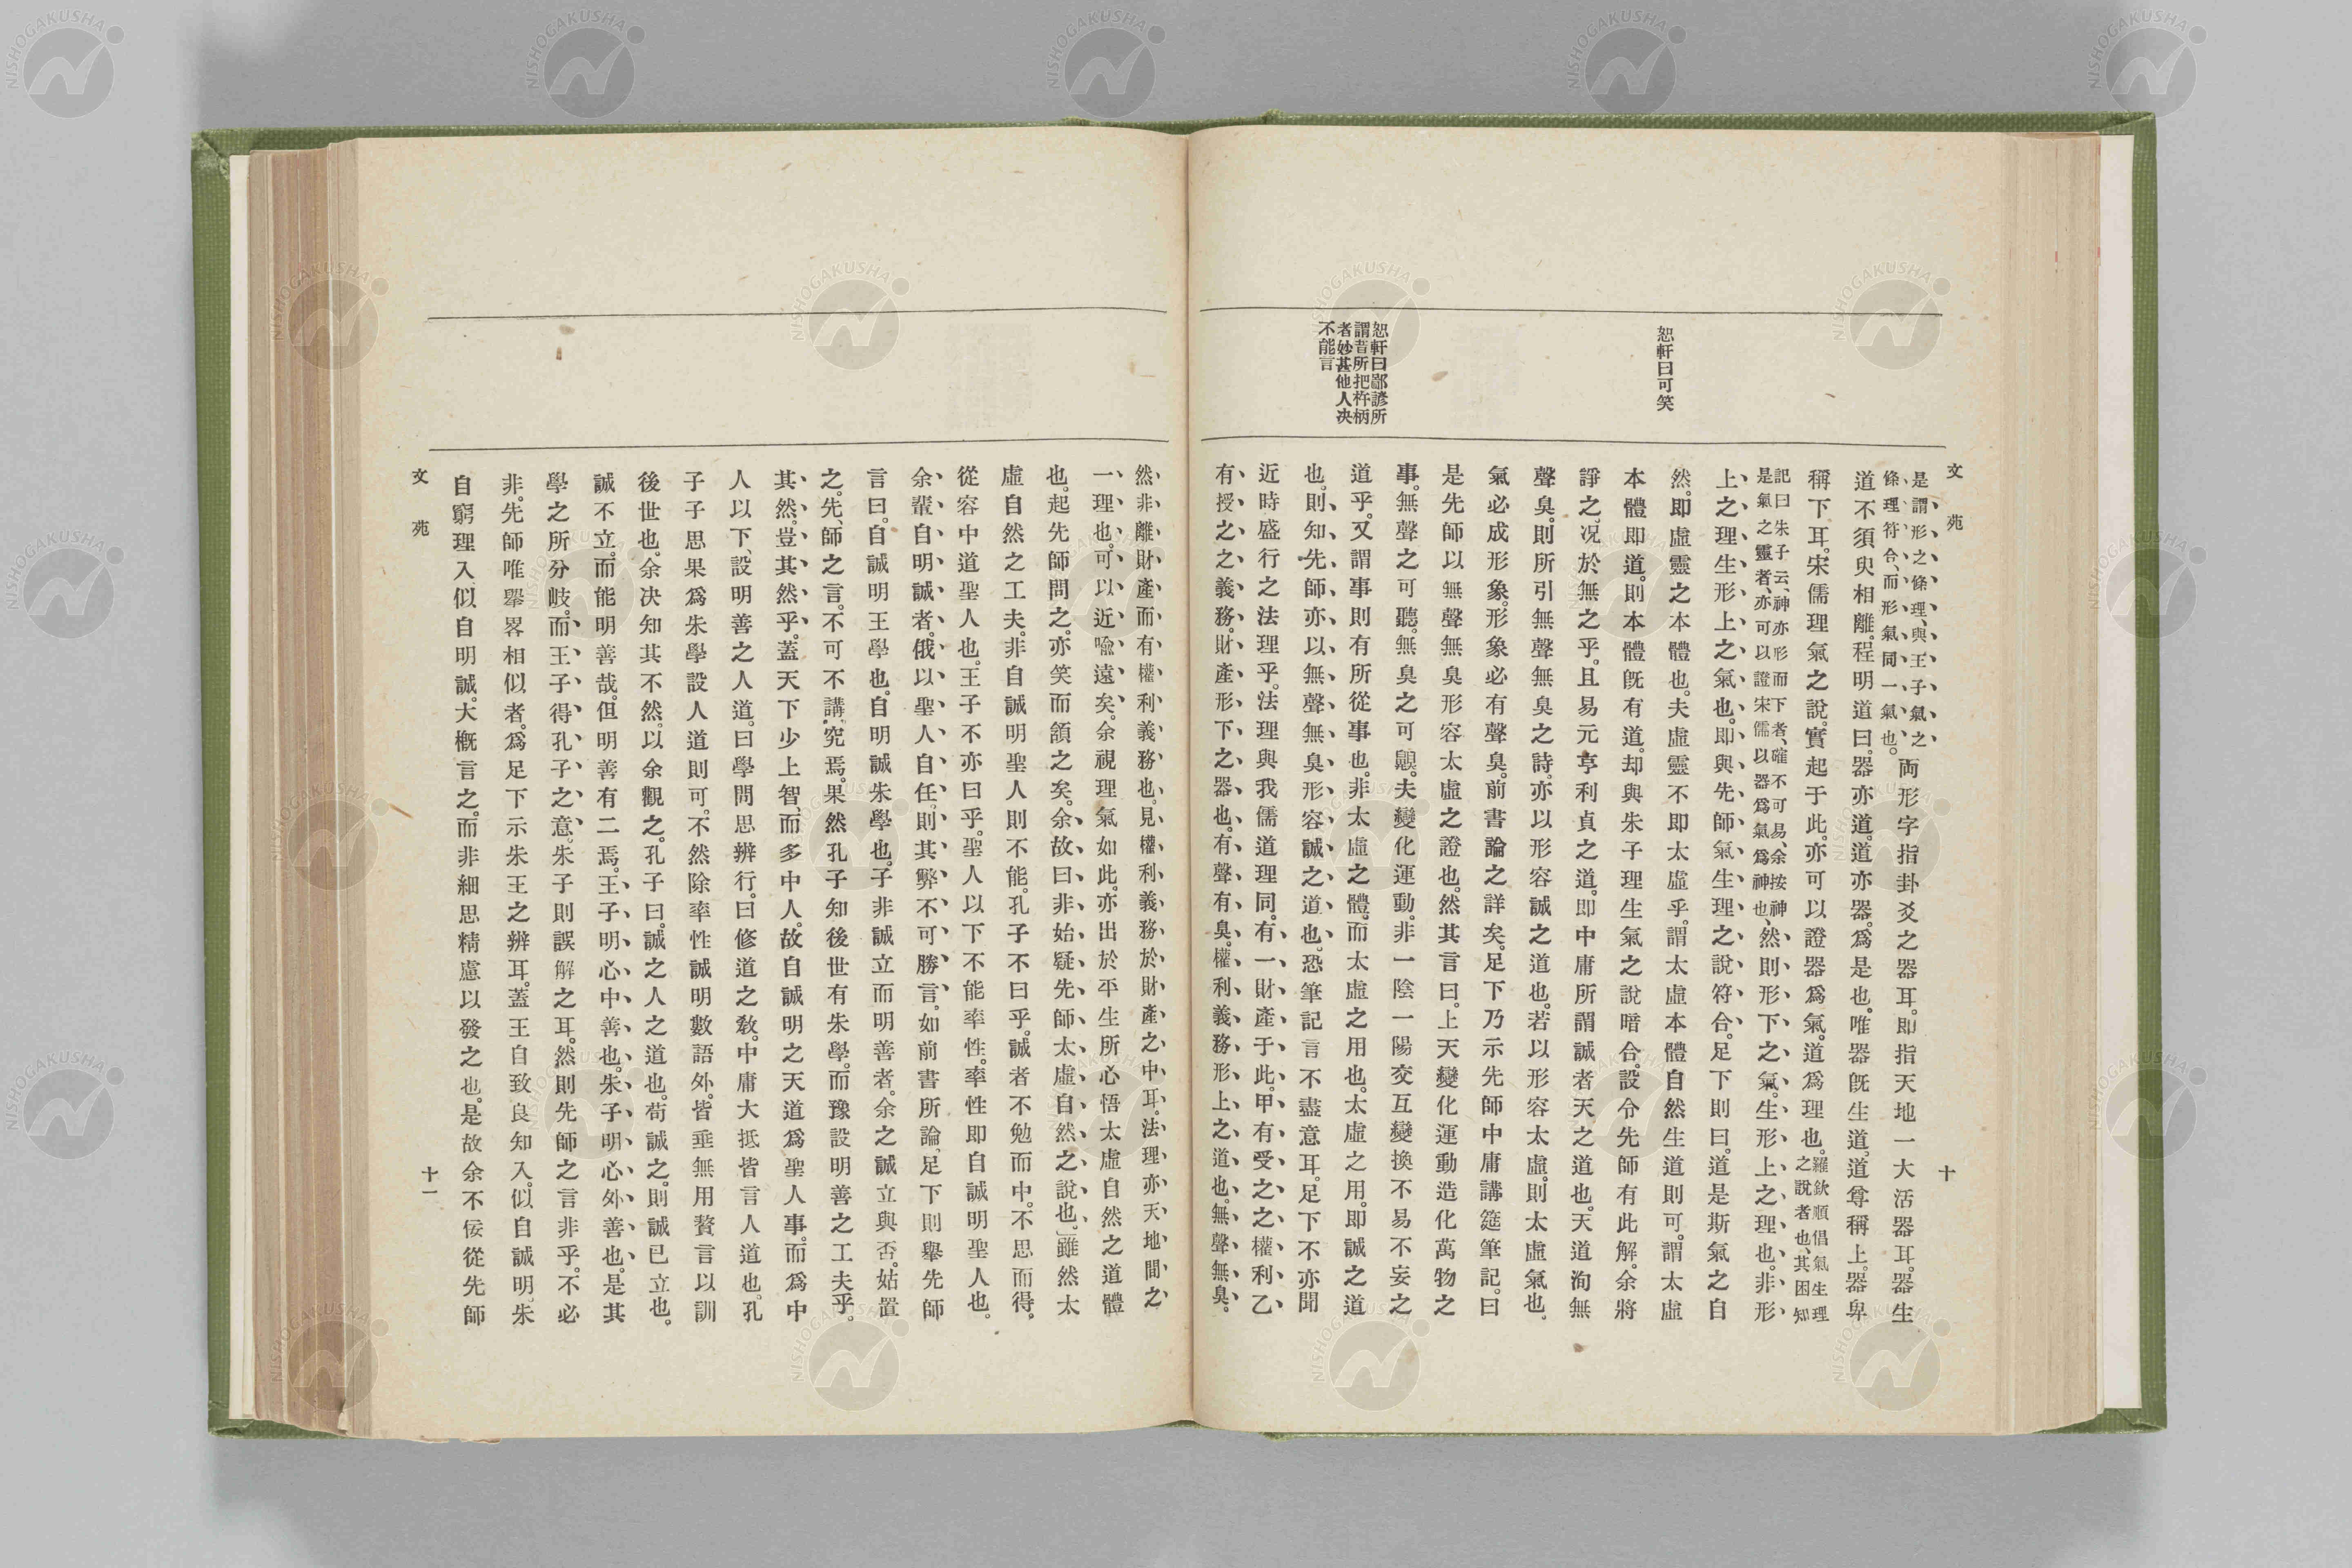 文苑
十
恕軒曰可笑
恕軒曰鄙諺所
謂昔所把杵柄
者妙甚他人决
不能言
是謂形之條理、與王子氣之
條理符合、而形氣同一氣也。
両形字指卦爻之器耳。即指天地一大活器耳。器生
道不須臾相離。程明道曰。器亦道。道亦器。爲是也。唯器旣生道。道尊稱上。器卑
稱下耳。宋儒理氣之說。實起于此。亦可以證器爲氣。道爲理也。
羅欽順倡氣生理
之說者也、其困知
記曰朱子云、神亦形而下者、確不可易、余按神
是氣之靈者、亦可以證宋儒以器爲氣爲神也、
然則形下之氣。生形上之理也。非形
上之理生形上之氣也。即與先師氣生理之說符合。足下則曰。道是斯氣之自
然。即虛靈之本體也。夫虛靈不即太虛乎。謂太虛本體自然生道則可。謂太虛
本體即道。則本體旣有道。却與朱子理生氣之說暗合。設令先師有此解。余將
諍之。况於無之乎。且易元亨利貞之道。即中庸所謂誠者天之道也。天道洵無
聲臭。則所引無聲無臭之詩。亦以形容誠之道也。若以形容太虛。則太虛氣也。
氣必成形象。形象必有聲臭。前書論之詳矣。足下乃示先師中庸講筵筆記。曰
是先師以無聲無臭形容太虛之證也。然其言曰。上天變化運動造化萬物之
事。無聲之可聽。無臭之可齅。夫變化運動。非一陰一陽交互變換不易不妄之
道乎。又謂事則有所從事也。非太虛之體。而太虛之用也。太虛之用。即誠之道
也。則知先師亦以無聲無臭形容誠之道也。恐筆記言不盡意耳。足下不亦聞
近時盛行之法理乎。法理與我儒道理同。有一財產于此。甲有受之之權利。乙
有授之之義務。財產形下之器也。有聲有臭。權利義務形上之道也。無聲無臭。
然非離財產而有權利義務也。見權利義務於財產之中耳。法理亦天地間之
一理也。可以近喩遠矣。余視理氣如此。亦出於平生所心悟太虛自然之道體
也。起先師問之。亦笑而頷之矣。余故曰。非始疑先師太虛自然之說也。」雖然太
虛自然之工夫。非自誠明聖人則不能。孔子不曰乎。誠者不勉而中。不思而得。
從容中道聖人也。王子不亦曰乎。聖人以下不能率性。率性即自誠明聖人也。
余輩自明誠者。俄以聖人自任。則其弊不可勝言。如前書所論。足下則舉先師
言曰。自誠明王學也。自明誠朱學也。子非誠立而明善者。余之誠立與否。姑置
之。先師之言。不可不講究焉。果然孔子知後世有朱學。而豫設明善之工夫乎。
其然。豈其然乎。蓋天下少上智。而多中人。故自誠明之天道爲聖人事。而爲中
人以下、設明善之人道。曰學問思辨行。曰修道之敎。中庸大抵皆言人道也。孔
子子思果爲朱學設人道則可。不然除率性誠明數語外。皆垂無用贅言以訓
後世也。余决知其不然。以余觀之。孔子曰。誠之人之道也。苟誠之。則誠已立也。
誠不立。而能明善哉。但明善有二焉。王子明心中善也。朱子明心外善也。是其
學之所分岐。而王子得孔子之意。朱子則誤解之耳。然則先師之言非乎。不必
非。先師唯舉畧相似者。爲足下示朱王之辨耳。蓋王自致良知入。似自誠明。朱
自窮理入。似自明誠。大槪言之。而非細思精慮以發之也。是故余不佞從先師
文苑
十一